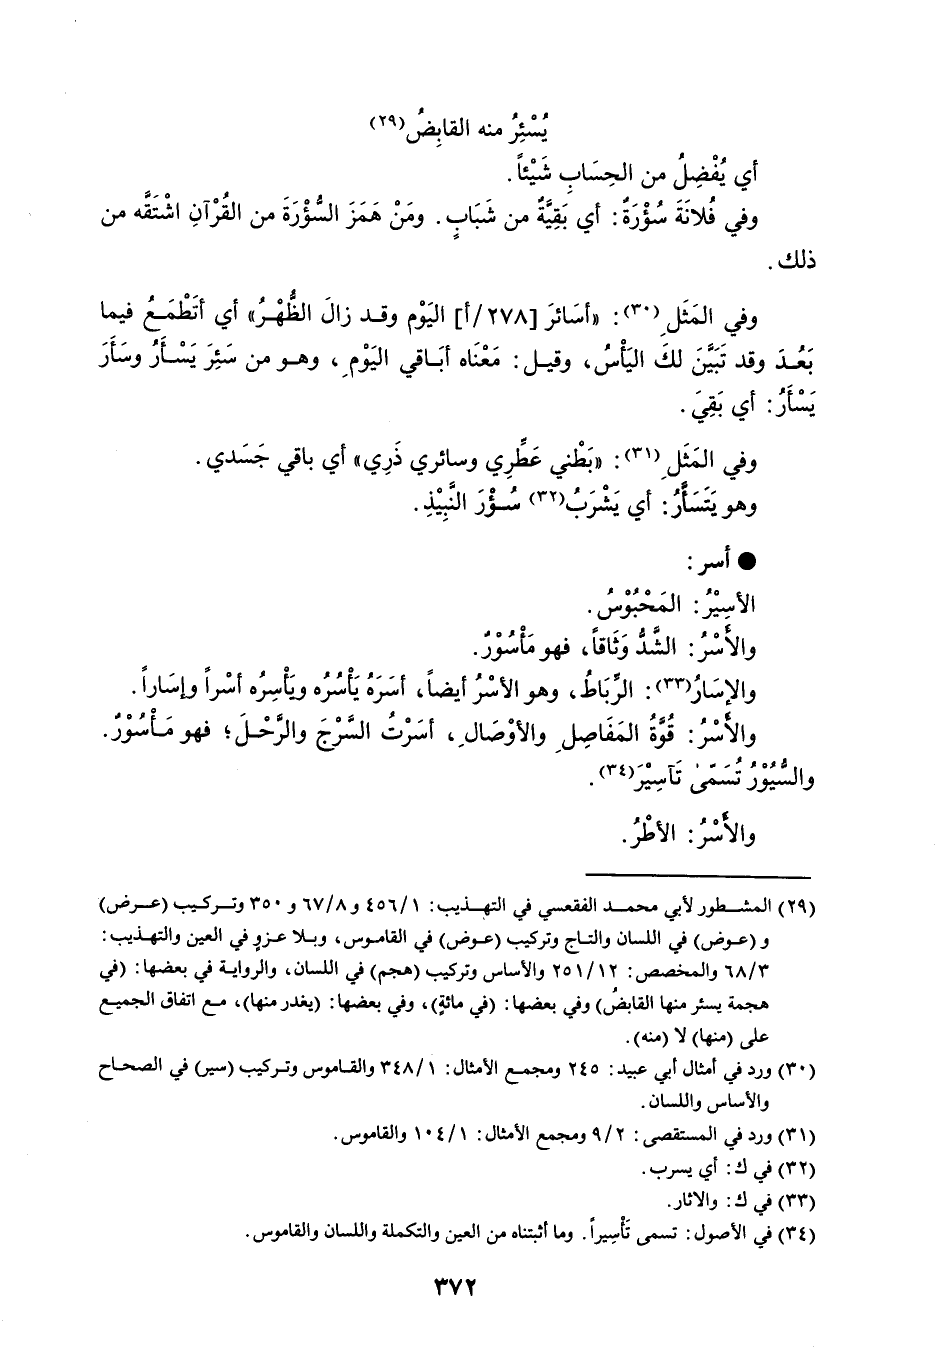 يُسْئِرُ منه القابِضُ(٢٩)
أي يُفْضِلُ من الحِسَابِ شَيْئاً.
وفي فُلانَةَ سُؤْرَةٌ: أي بَقِيَّةٌ من شَبَابٍ. ومَنْ هَمَزَ السُّؤْرَةَ من القُرْآنِ اشْتَقَّه من
ذلك.
وفي المَثَلِ(٣٠): «أسَائرَ [٢٧٨/أ] اليَوْم وقد زالَ الظُّهْرُ» أي أتَطْمَعُ فيما
بَعُدَ وقد تَبَيَّنَ لكَ اليَأْسُ، وقيل: مَعْنَاه أبَاقي اليَوْمِ، وهو من سَئِرَ يَسْأَرُ وسَأَرَ
يَسْأَرُ: أي بَقِيَ.
وفي المَثَلِ(٣١): «بَطْني عَطِّرِي وسائري ذَرِي» أي باقي جَسَدي.
وهو يَتَسَأَّرُ: أي يَشْرَبُ(٣٢) سُؤْرَ النَّبِيْذِ.
● أسر:
الأسِيْرُ: المَحْبُوْسُ.
والأَسْرُ: الشَّدُّ وَثَاقاً، فهو مَأْسُوْرٌ.
والإسَارُ(٣٣): الرِّبَاطُ، وهو الأسْرُ أيضاً، أسَرَهُ يَأْسُرُه ويَأْسِرُه أسْراً وإسَاراً.
والأَسْرُ: قُوَّةُ المَفَاصِلِ والأوْصَالِ، أسَرْتُ السَّرْجَ والرَّحْلَ؛ فهو مَأْسُوْرٌ.
والسُّيُوْرُ تُسَمّىٰ تَآسِيْرَ(٣٤).
والأَسْرُ: الأطْرُ.
(٢٩) المشطور لأبي محمد الفقعسي في التهذيب: ٤٥٦/١ و ٦٧/٨ و ٣٥٠ وتركيب (عرض)
و (عوض) في اللسان والتاج وتركيب (عوض) في القاموس، وبلا عزوٍ في العين والتهذيب:
٦٨/٣ والمخصص: ٢٥١/١٢ والأساس وتركيب (هجم) في اللسان، والرواية في بعضها: (في
هجمة يسئر منها القابضُ) وفي بعضها: (في مائةٍ)، وفي بعضها: (يغدر منها)، مع اتفاق الجميع
على (منها) لا (منه).
(٣٠) ورد في أمثال أبي عبيد: ٢٤٥ ومجمع الأمثال: ٣٤٨/١ والقاموس وتركيب (سير) في الصحاح
والأساس واللسان.
(٣١) ورد في المستقصى: ٩/٢ ومجمع الأمثال: ١٠٤/١ والقاموس.
(٣٢) في ك: أي يسرب.
(٣٣) في ك: والاثار.
(٣٤) في الأصول: تسمى تَأْسِيراً. وما أثبتناه من العين والتكملة واللسان والقاموس.
٣٧٢